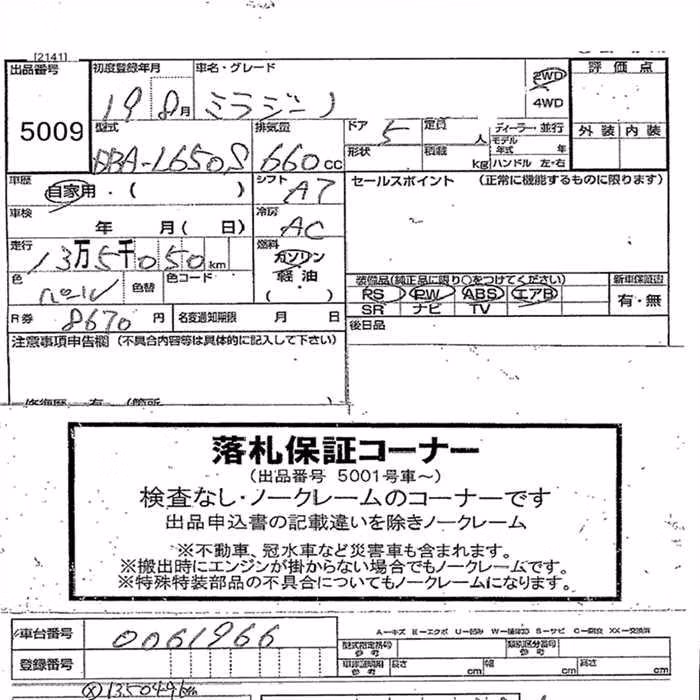 [2141]
出品番号 初度登録年月 車名・グレード 2WD 4WD 評価点
5009 19 8月 ミラジーノ 外装 内装
型式 排気量 ドア 定員 ディーラー・並行
DBA-L650S 660cc 5 人 モデル年式 年
形状 積載 kg ハンドル 左・右
車歴 自家用・( ) シフト AT セールスポイント (正常に機能するものに限ります)
車検 年 月( 日) 冷房 AC
走行 13万5千050km 燃料 ガソリン 軽油 ( )
色 パール 色替 色コード
装備品(純正品に限り○をつけてください) 新車保証書
PS PW ABS エアB 有・無
SR ナビ TV
R券 8670円 名変通知期限 月 日 後日品
注意事項申告欄 (不具合内容等は具体的に記入して下さい)
修復歴 有 (箇所 )
落札保証コーナー
(出品番号 5001号車~)
検査なし・ノークレームのコーナーです
出品申込書の記載違いを除きノークレーム
※不動車、冠水車など災害車も含まれます。
※搬出時にエンジンが掛からない場合でもノークレームです。
※特殊特装部品の不具合についてもノークレームになります。
車台番号 0061966
A-キズ E-エクボ U-凹み W-補修跡 S-サビ C-腐食 XX-交換済
型式指定番号 参考 類別区分番号 参考
登録番号 車庫証明用 参考 長さ cm 幅 cm 高さ cm
135049km